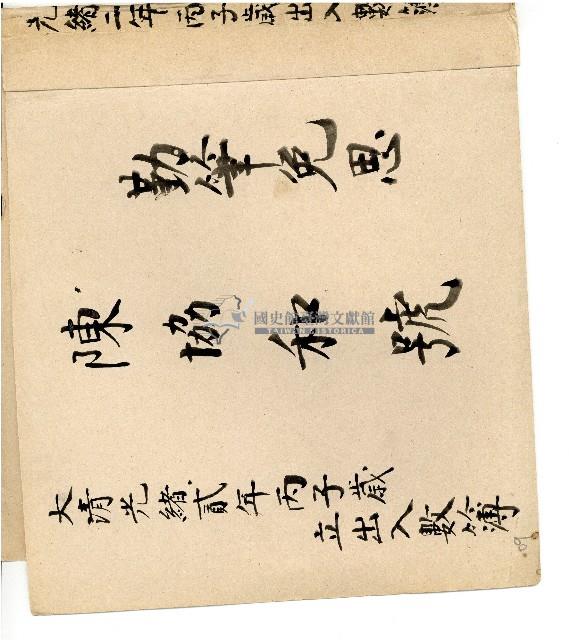 光緒二年丙子歲出入數簿
勤筆免思
陳協和號
國史館臺灣文獻館
TAIWAN HISTORICA
大清光緒貳年丙子歲
立出入數簿